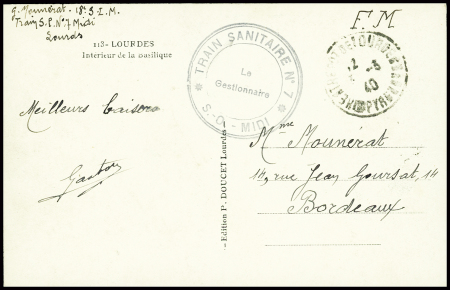 G. Mounérat - 18e S.I.M.
Train S.P. N° 7 Midi
Lourdes
F M
113 - LOURDES
Intérieur de la basilique
* TRAIN SANITAIRE N° 7 *
Le
Gestionnaire
S.-O. - MIDI
12 -5
40
PYRENEES
Meilleurs baisers
Gaston
- Edition P. DOUCET Lourdes -
Mme Mounérat
14, rue Jean Goursat, 14
Bordeaux